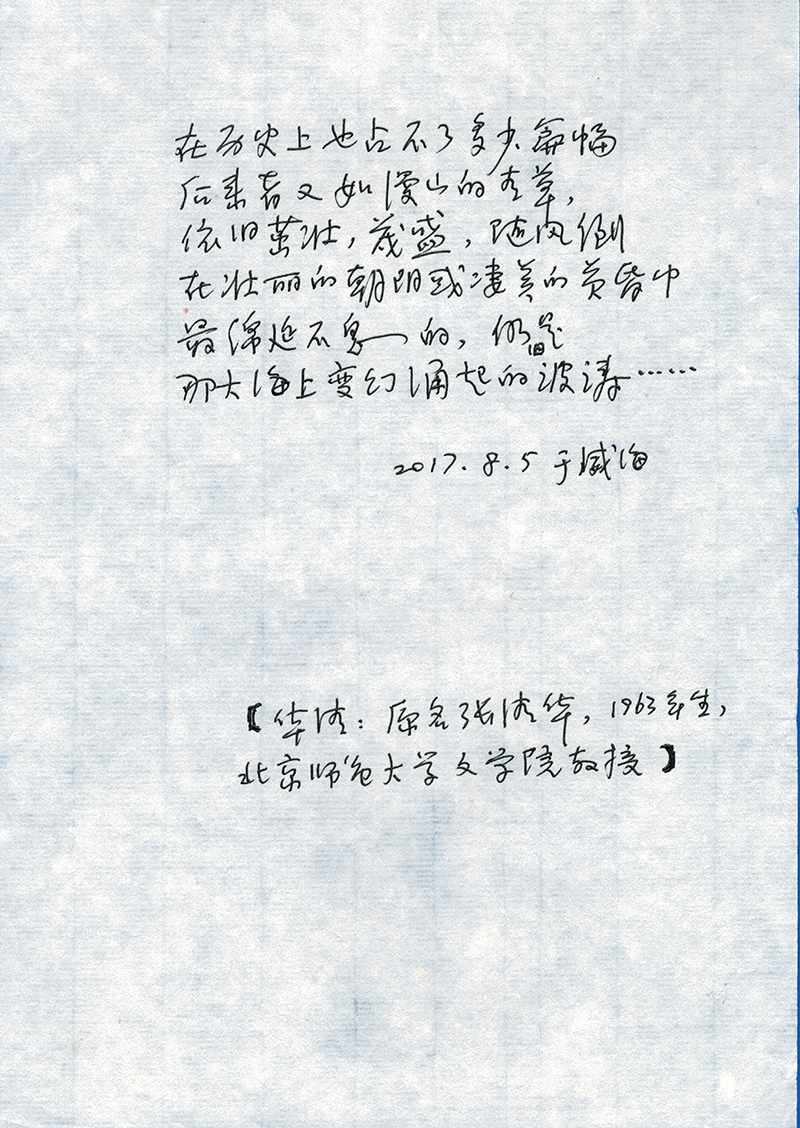 在历史上也占不了多少篇幅
后来者又如漫山的青草，
依旧茁壮，茂盛，随风倒
在壮丽的朝阴或凄美的黄昏中
最绵延不息的，仍旧是
那大海上变幻涌起的波涛……
2017.8.5 于威海
【华清：原名张清华，1963年生，
北京师范大学文学院教授】